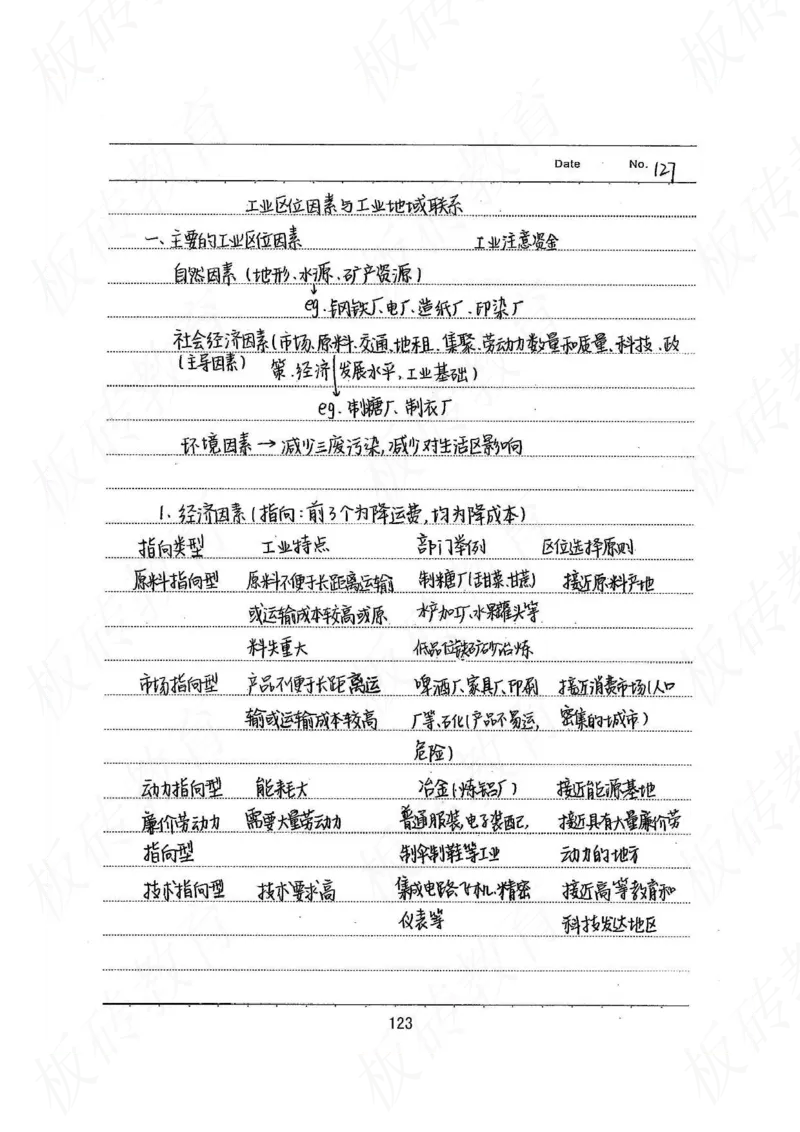 Date No. 127
工业区位因素与工业地域联系
一、主要的工业区位因素 工业注意资金
自然因素(地形、水源、矿产资源)
eg.钢铁厂、电厂、造纸厂、印染厂
社会经济因素(市场、原料、交通、地租、集聚、劳动力数量和质量、科技、政
(主导因素) 策、经济发展水平,工业基础)
eg.制糖厂、制衣厂
环境因素→减少三废污染,减少对生活区影响
1.经济因素(指向:前3个为降运费,均为降成本)
指向类型 工业特点 部门举例 区位选择原则
原料指向型 原料不便于长距离运输 制糖厂(甜菜、甘蔗) 接近原料产地
或运输成本较高或原 水产加工、水果罐头等
料失重大 低品位铁矿砂冶炼
市场指向型 产品不便于长距离运 啤酒厂、家具厂、印刷 接近消费市场(人口
输或运输成本较高 厂等、石化(产品不易运, 密集的城市)
危险)
动力指向型 能耗大 冶金(炼铝厂) 接近能源基地
廉价劳动力 需要大量劳动力 普通服装、电子装配, 接近具有大量廉价劳
指向型 制伞制鞋等工业 动力的地方
技术指向型 技术要求高 集成电路、飞机、精密 接近高等教育和
仪表等 科技发达地区
123
板砖教育